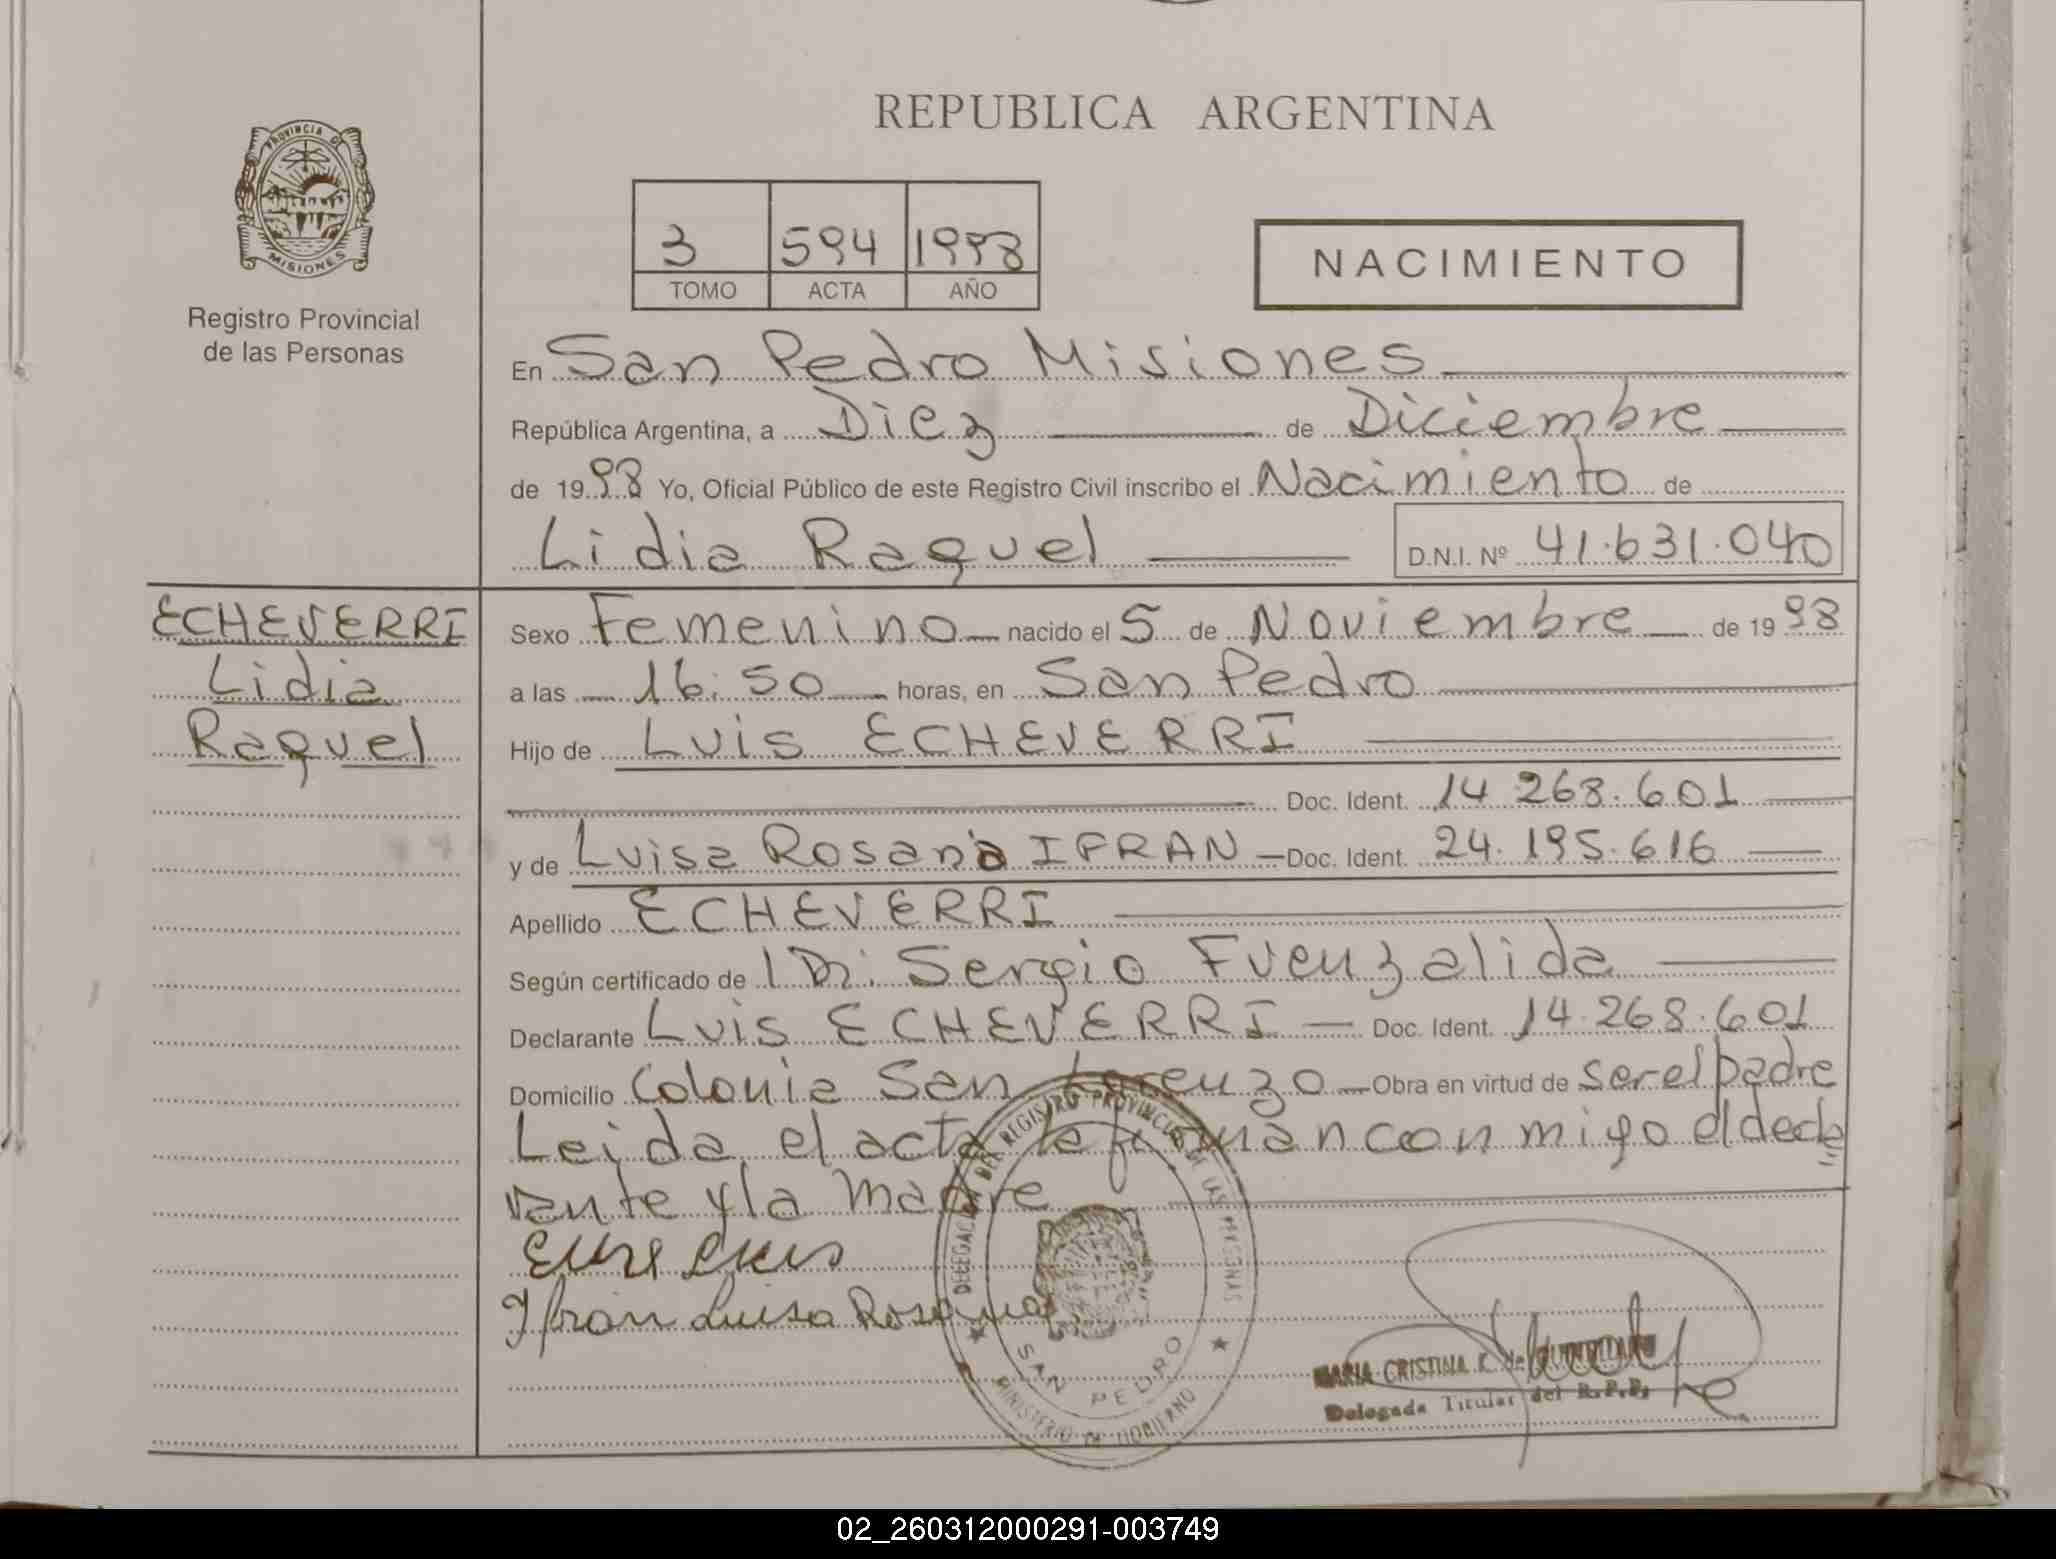 REPUBLICA ARGENTINA
PROVINCIA DE
MISIONES
Registro Provincial
de las Personas
3 594 1998
TOMO ACTA AÑO
NACIMIENTO
En San Pedro Misiones
República Argentina, a Diez de Diciembre
de 1998 Yo, Oficial Público de este Registro Civil inscribo el Nacimiento de
Lidia Raquel D.N.I. Nº 41.631.040
ECHEVERRI
Lidia
Raquel
Sexo Femenino nacido el 5 de Noviembre de 1998
a las 16:50 horas, en San Pedro
Hijo de Luis ECHEVERRI
Doc. Ident. 14.268.601
y de Luisa Rosana IFRAN Doc. Ident. 24.195.616
Apellido ECHEVERRI
Según certificado de l Dr. Sergio Fuenzalida
Declarante Luis ECHEVERRI Doc. Ident. 14.268.601
Domicilio Colonia San Lorenzo Obra en virtud de ser el padre
Leida el acta la firman con migo el decla
rante y la madre
Ifran Luisa Rosana
DELEGACION DEL REGISTRO PROVINCIAL DE LAS PERSONAS
SAN PEDRO
MINISTERIO DE GOBIERNO
MARIA CRISTINA K. de
Delegada Titular del R.P.P.
02_260312000291-003749